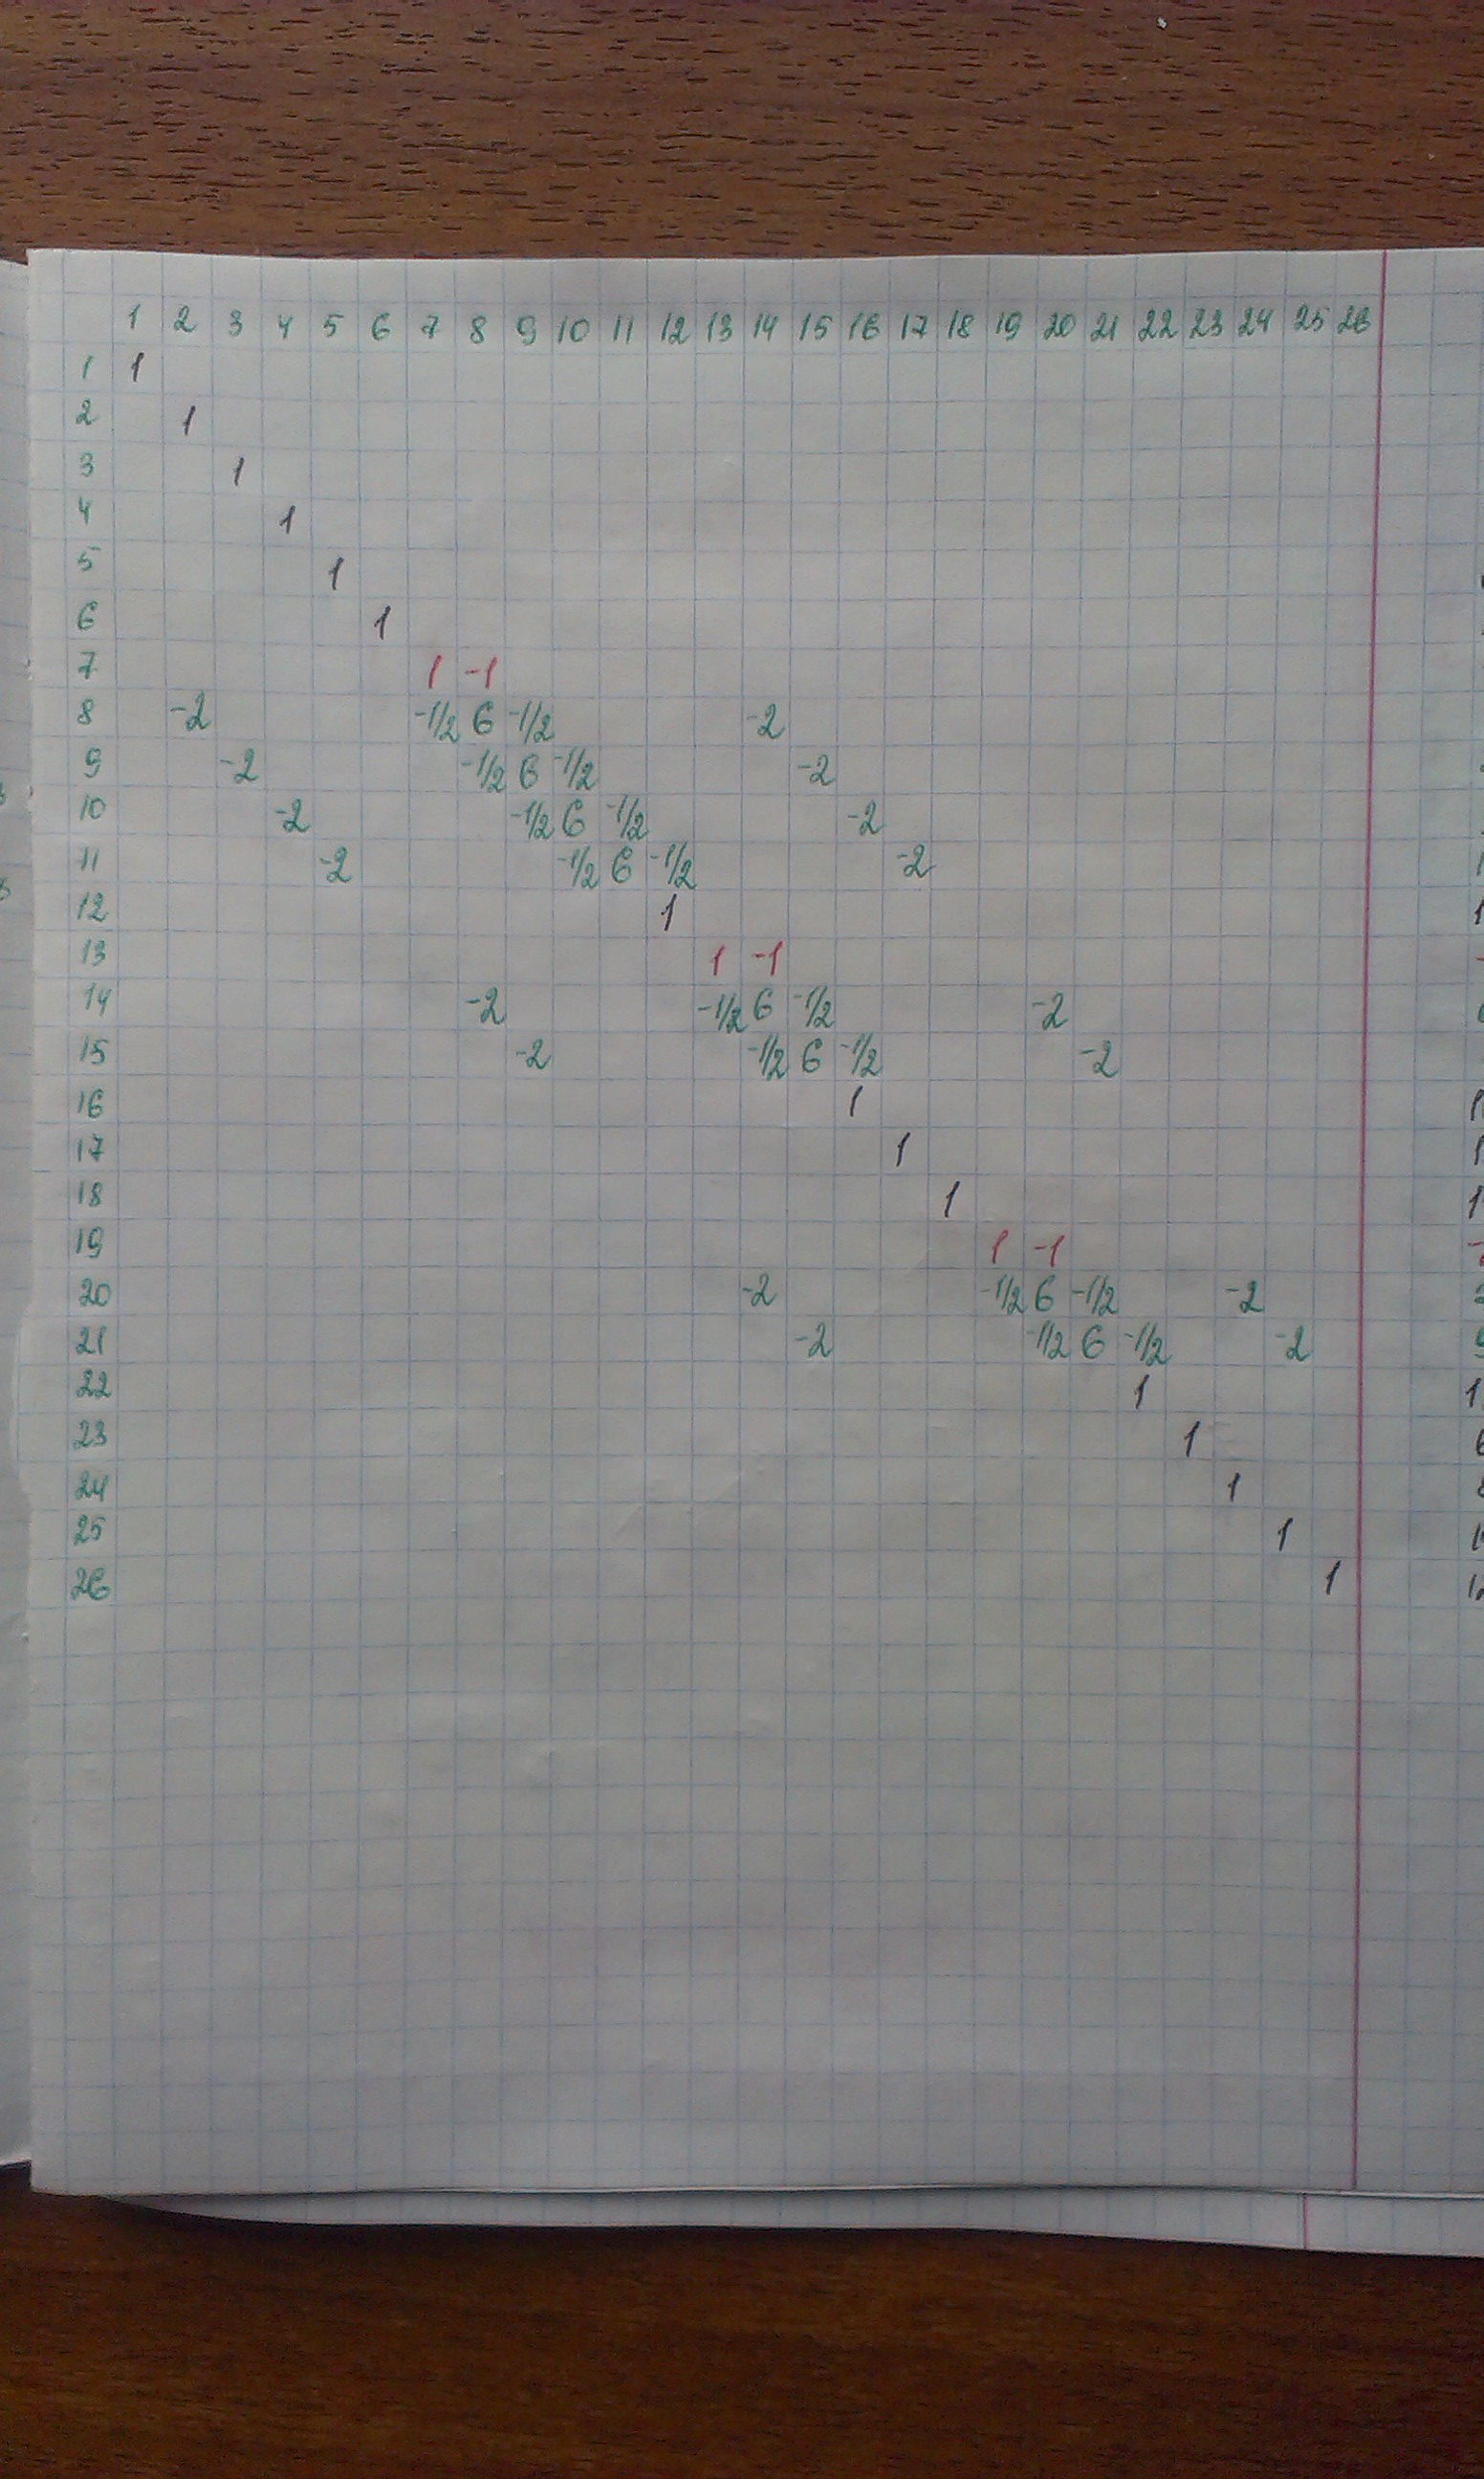 1 2 3 4 5 6 7 8 9 10 11 12 13 14 15 16 17 18 19 20 21 22 23 24 25 26
1 1
2 1
3 1
4 1
5 1
6 1
7 1 -1
8 -2 -1/2 6 -1/2 -2
9 -2 -1/2 6 -1/2 -2
10 -2 -1/2 6 -1/2 -2
11 -2 -1/2 6 -1/2 -2
12 1
13 1 -1
14 -2 -1/2 6 -1/2 -2
15 -2 -1/2 6 -1/2 -2
16 1
17 1
18 1
19 1 -1
20 -2 -1/2 6 -1/2 -2
21 -2 -1/2 6 -1/2 -2
22 1
23 1
24 1
25 1
26 1